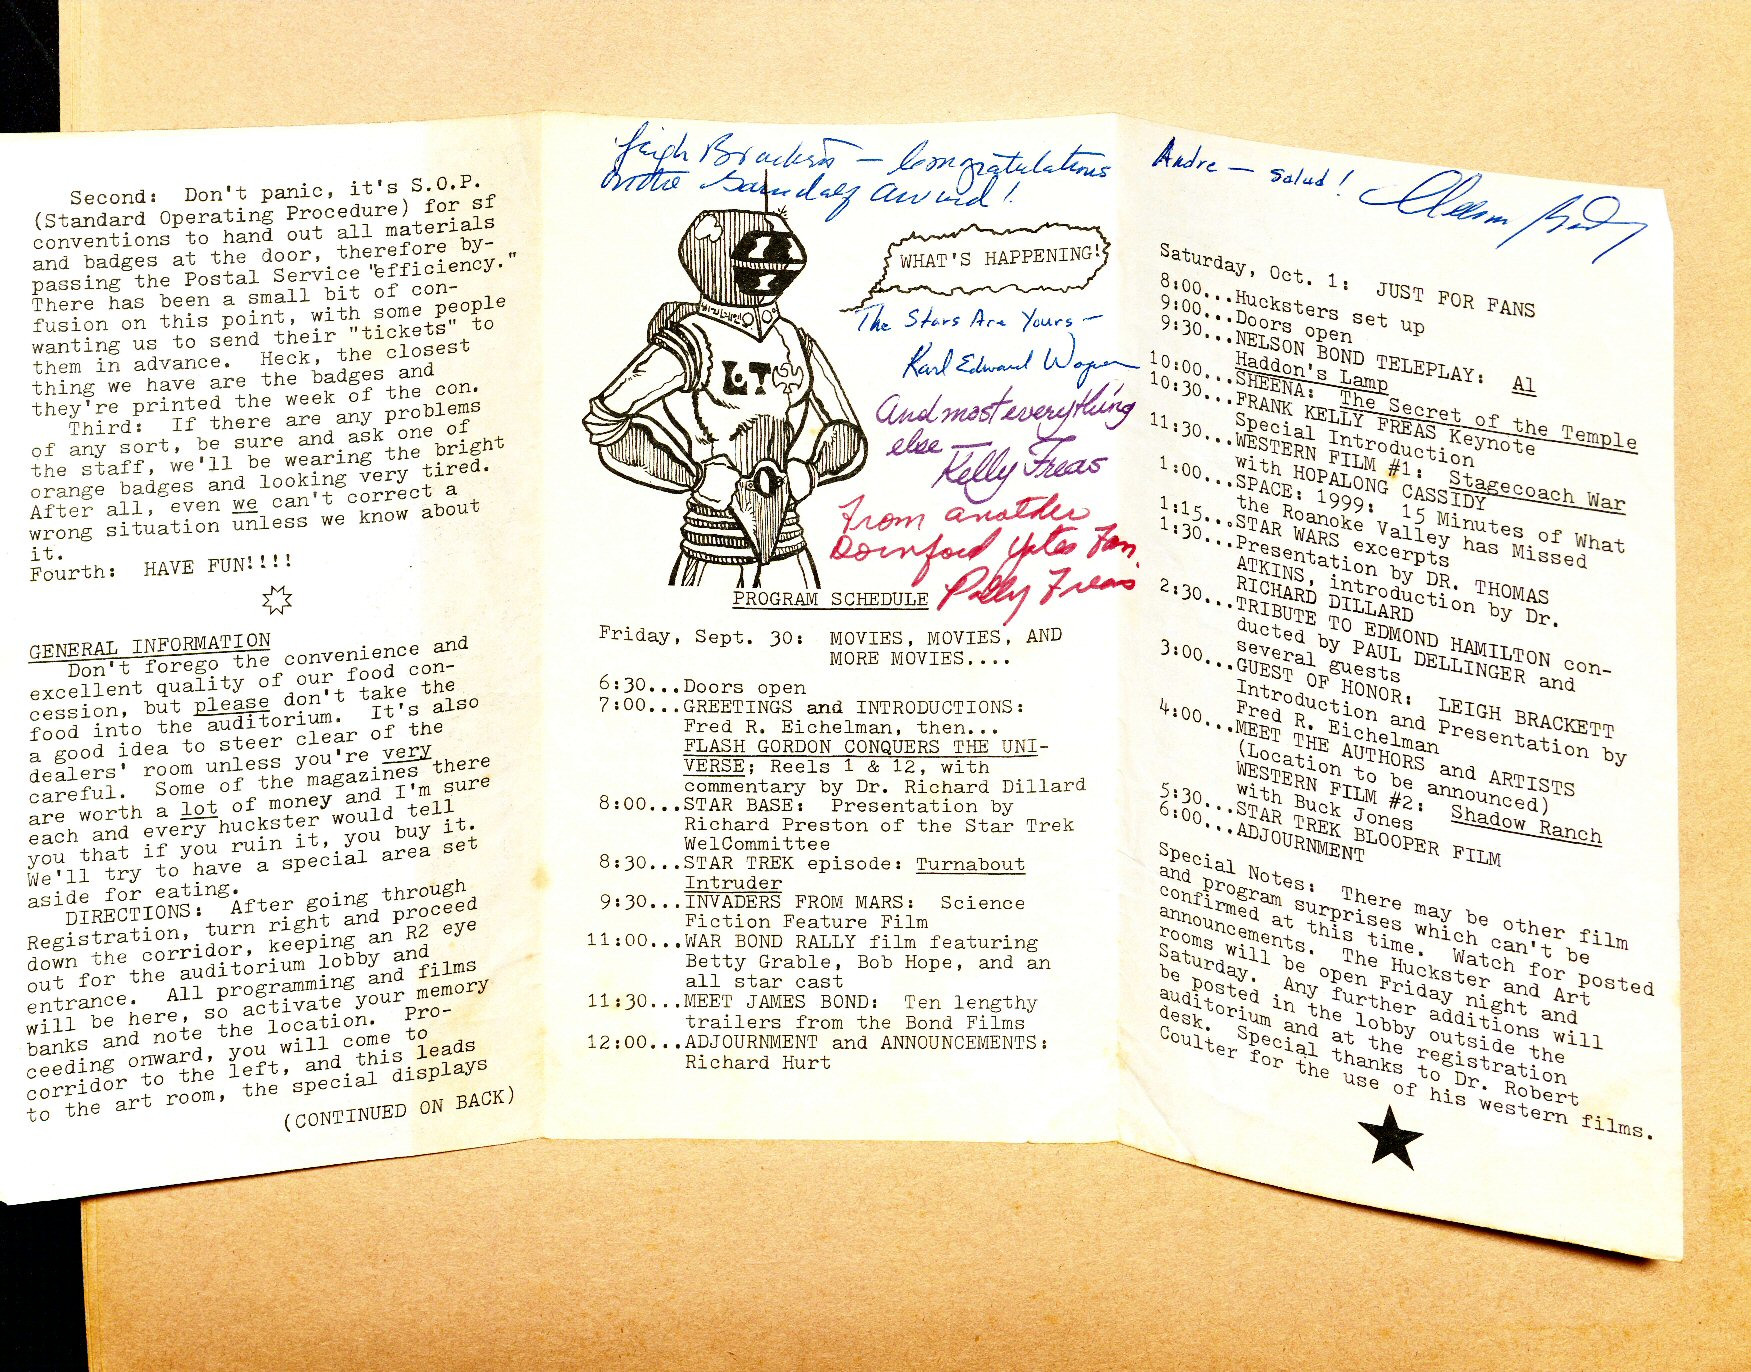 Second: Don't panic, it's S.O.P.
(Standard Operating Procedure) for sf
conventions to hand out all materials
and badges at the door, therefore by-
passing the Postal Service "efficiency."
There has been a small bit of con-
fusion on this point, with some people
wanting us to send their "tickets" to
them in advance. Heck, the closest
thing we have are the badges and
they're printed the week of the con.
Third: If there are any problems
of any sort, be sure and ask one of
the staff, we'll be wearing the bright
orange badges and looking very tired.
After all, even we can't correct a
wrong situation unless we know about
it.
Fourth: HAVE FUN!!!!
GENERAL INFORMATION
Don't forego the convenience and
excellent quality of our food con-
cession, but please don't take the
food into the auditorium. It's also
a good idea to steer clear of the
dealers' room unless you're very
careful. Some of the magazines there
are worth a lot of money and I'm sure
each and every huckster would tell
you that if you ruin it, you buy it.
We'll try to have a special area set
aside for eating.
DIRECTIONS: After going through
Registration, turn right and proceed
down the corridor, keeping an R2 eye
out for the auditorium lobby and
entrance. All programming and films
will be here, so activate your memory
banks and note the location. Pro-
ceeding onward, you will come to
corridor to the left, and this leads
to the art room, the special displays
(CONTINUED ON BACK)
Leigh Brackett — Congratulations
on the Gandalf award!
WHAT'S HAPPENING!
The Stars Are Yours —
Karl Edward Wagner
And most everything
else
Kelly Freas
From another
Dornford Yates Fan,
Polly Freas
LT
PROGRAM SCHEDULE
Friday, Sept. 30: MOVIES, MOVIES, AND
MORE MOVIES....
6:30...Doors open
7:00...GREETINGS and INTRODUCTIONS:
Fred R. Eichelman, then...
FLASH GORDON CONQUERS THE UNI-
VERSE; Reels 1 & 12, with
commentary by Dr. Richard Dillard
8:00...STAR BASE: Presentation by
Richard Preston of the Star Trek
WelCommittee
8:30...STAR TREK episode: Turnabout
Intruder
9:30...INVADERS FROM MARS: Science
Fiction Feature Film
11:00...WAR BOND RALLY film featuring
Betty Grable, Bob Hope, and an
all star cast
11:30...MEET JAMES BOND: Ten lengthy
trailers from the Bond Films
12:00...ADJOURNMENT and ANNOUNCEMENTS:
Richard Hurt
Andre — Salud!
Nelson Bond
Saturday, Oct. 1: JUST FOR FANS
8:00...Hucksters set up
9:00...Doors open
9:30...NELSON BOND TELEPLAY: Al
Haddon's Lamp
10:00...SHEENA: The Secret of the Temple
10:30...FRANK KELLY FREAS Keynote
Special Introduction
11:30...WESTERN FILM #1: Stagecoach War
with HOPALONG CASSIDY
1:00...SPACE: 1999: 15 Minutes of What
the Roanoke Valley has Missed
1:15...STAR WARS excerpts
1:30...Presentation by DR. THOMAS
ATKINS, introduction by Dr.
RICHARD DILLARD
2:30...TRIBUTE TO EDMOND HAMILTON con-
ducted by PAUL DELLINGER and
several guests
3:00...GUEST OF HONOR: LEIGH BRACKETT
Introduction and Presentation by
Fred R. Eichelman
4:00...MEET THE AUTHORS and ARTISTS
(Location to be announced)
WESTERN FILM #2: Shadow Ranch
with Buck Jones
5:30...STAR TREK BLOOPER FILM
6:00...ADJOURNMENT
Special Notes: There may be other film
and program surprises which can't be
confirmed at this time. Watch for posted
announcements. The Huckster and Art
rooms will be open Friday night and
Saturday. Any further additions will
be posted in the lobby outside the
auditorium and at the registration
desk. Special thanks to Dr. Robert
Coulter for the use of his western films.